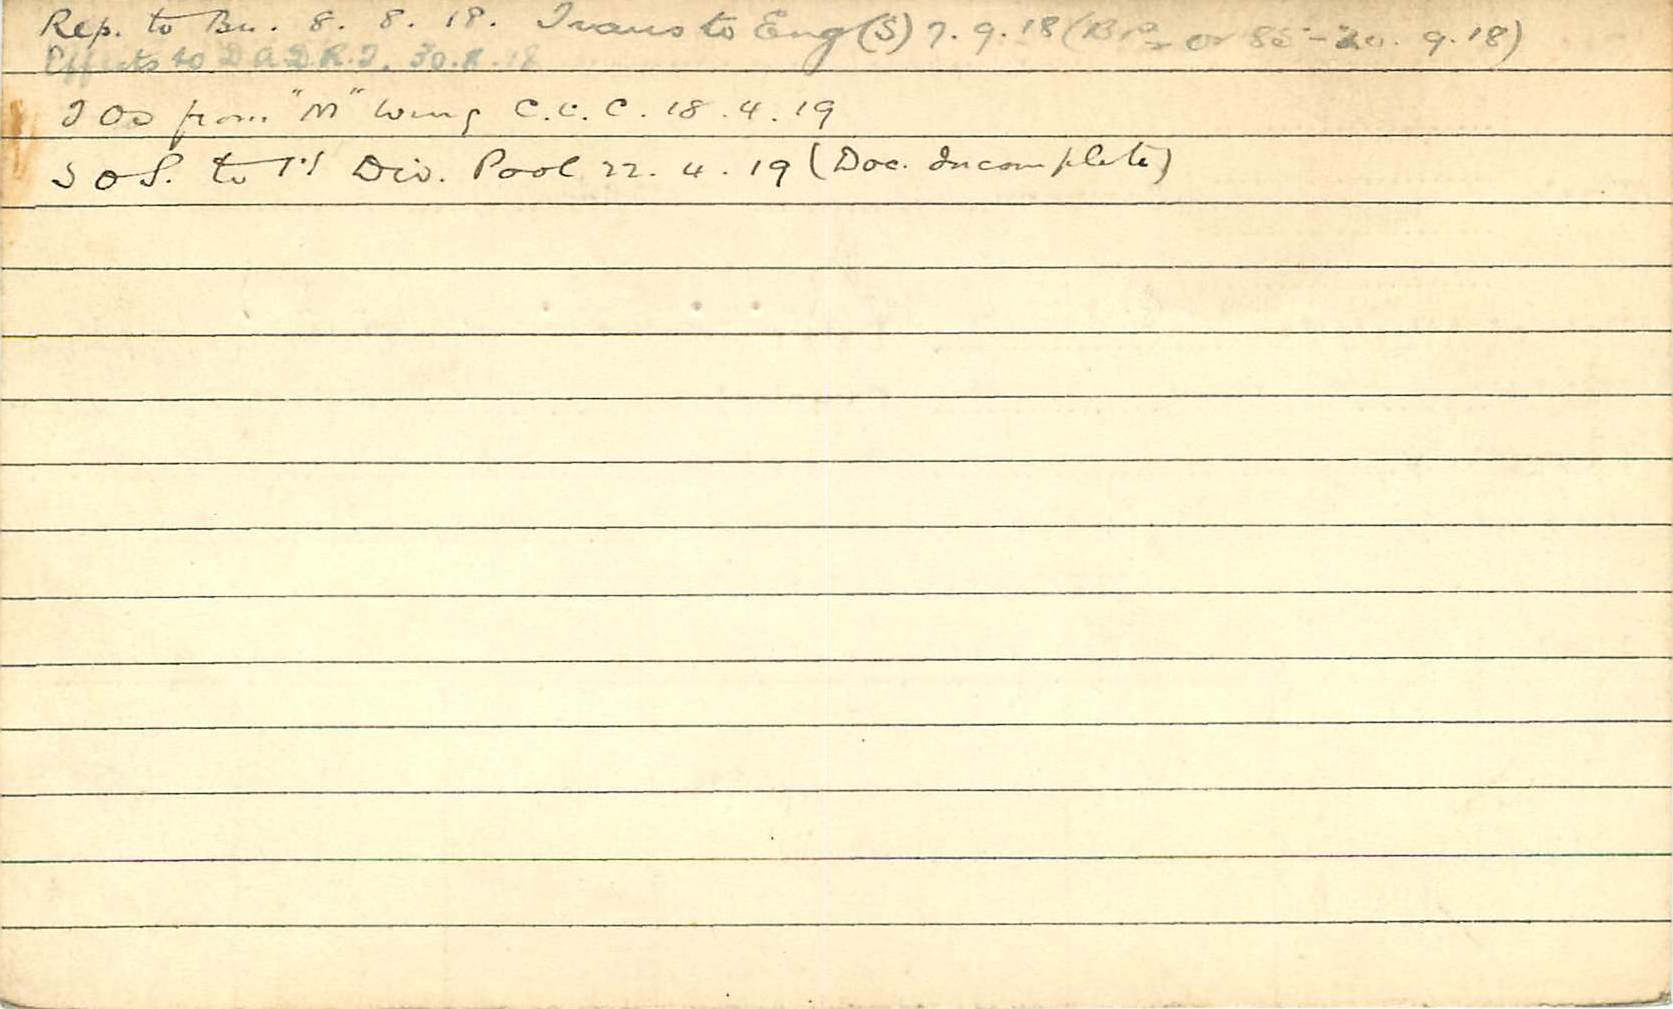 Rep. to Bn. 8. 8. 18. Trans to Eng (S) 7. 9. 18 ( 85 - 20. 9. 18)
Effects to D A D R. T. 18
T O S from "M" Wing C. C. C. 18. 4. 19
S O S. to 1st Div. Pool 22. 4. 19 (Doc. Incomplete)